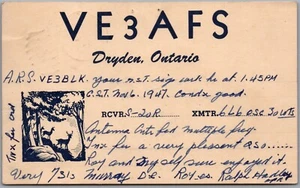 VE3AFS
Dryden, Ontario
A.R.S. VE3BLK. your n.s.t. sig wrk hr at 1:45AM
C.S.T. Nov 6. 1947. Condx good.
RCVR. S-20R XMTR. 6L6 osc 30 watts
Antenna Cntr fed multiple freq.
Tnx fer a very pleasant qso......
Roy and myself sure enjoyed it.
Very 73's Murray De. Roy es Ralph Hadley
Tnx fer Crd